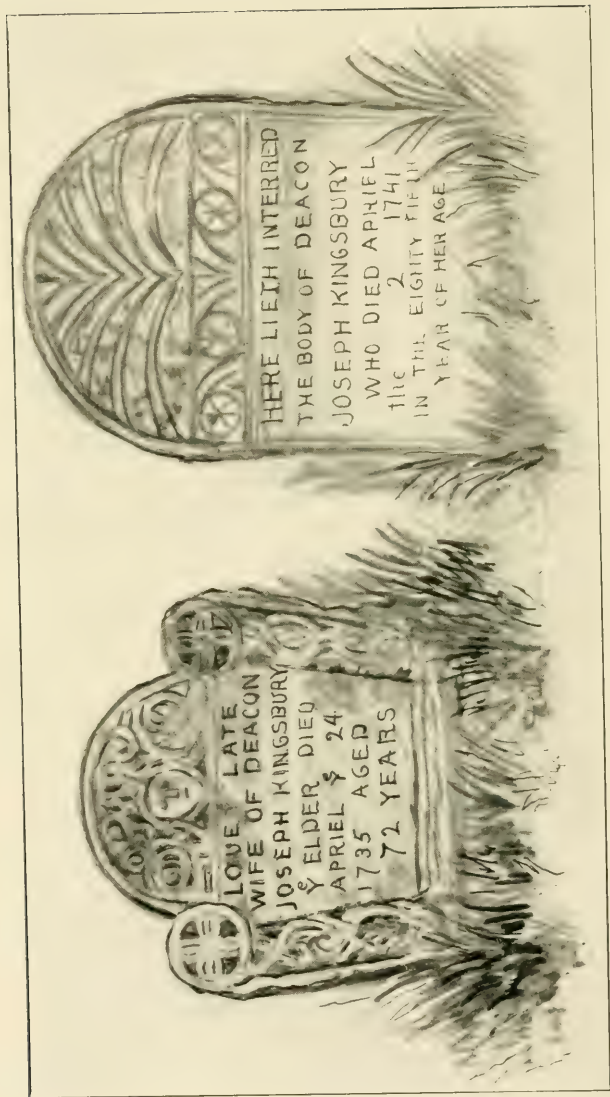 LOVE Y LATE
WIFE OF DEACON
JOSEPH KINGSBURY
Yͤ ELDER DIED
APRIEL Y 24
1735 AGED
72 YEARS
HERE LIETH INTERRED
THE BODY OF DEACON
JOSEPH KINGSBURY
WHO DIED APRIEL
the 2 1741
IN THE EIGHTY FIFTH
YEAR OF HER AGE